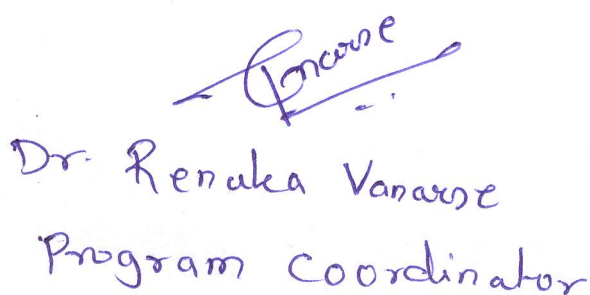 Dr. Renuka Vanarse
Program Coordinator